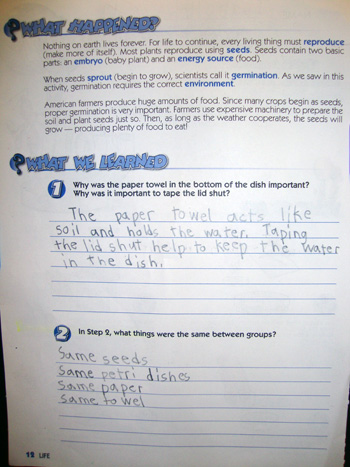 WHAT HAPPENED?
Nothing on earth lives forever. For life to continue, every living thing must reproduce
(make more of itself). Most plants reproduce using seeds. Seeds contain two basic
parts: an embryo (baby plant) and an energy source (food).
When seeds sprout (begin to grow), scientists call it germination. As we saw in this
activity, germination requires the correct environment.
American farmers produce huge amounts of food. Since many crops begin as seeds,
proper germination is very important. Farmers use expensive machinery to prepare the
soil and plant seeds just so. Then, as long as the weather cooperates, the seeds will
grow — producing plenty of food to eat!
WHAT WE LEARNED
1 Why was the paper towel in the bottom of the dish important?
Why was it important to tape the lid shut?
The paper towel acts like
soil and holds the water. Taping
the lid shut help to keep the water
in the dish.
2 In Step 2, what things were the same between groups?
Same seeds
Same petri dishes
Same paper
Same towel
12 LIFE